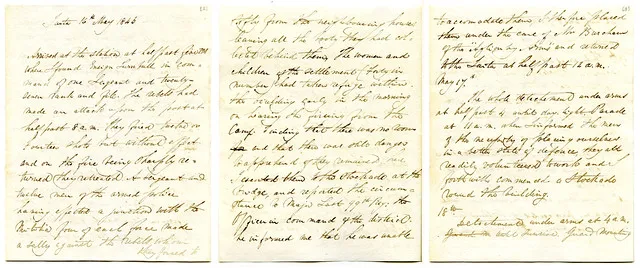 Sunto 16th May 1846
Arrived at the station at half past
where found Ensign Turnbull in com-
mand of one Sergeant and twenty-
seven rank and file. The rebels had
made an attack upon the post at
half past 8 a.m. They fired twelve or
fourteen shots but without effect
and on the fire being sharply re-
turned they retreated. A sergeant and
twelve men of the armed police
having effected a junction with the
force made
a sally against the rebels whom
they forced to
from the neighbouring house
leaving all the they had col-
lected behind them. The women and
children of the settlement forty in
number had taken refuge within
the building early in the morning
on hearing the firing from the
Camp. Finding that there was no room
and that there was still danger
to apprehend if they remained, we
them to the Stockade at the
bridge, and reported the circum-
stance to Major Last 99th Regt. the
Officer in command of the district.
he informed me that he was unable
to accomodate them, I therefore placed
them under the care of Mr Burcham
of the Aglionby Arms and returned
to the at half past 12 a.m.
May 17th
The whole detachment under arms
at half past 4 until day light. Parade
at 11 a.m. when informed the men
of the necessity of placing ourselves
in a better state of defence they all
readily volunteered to work and
forthwith commenced a Stockade
round the building.
18th
Detachment under arms at 4 a.m.
until Guard Mounting